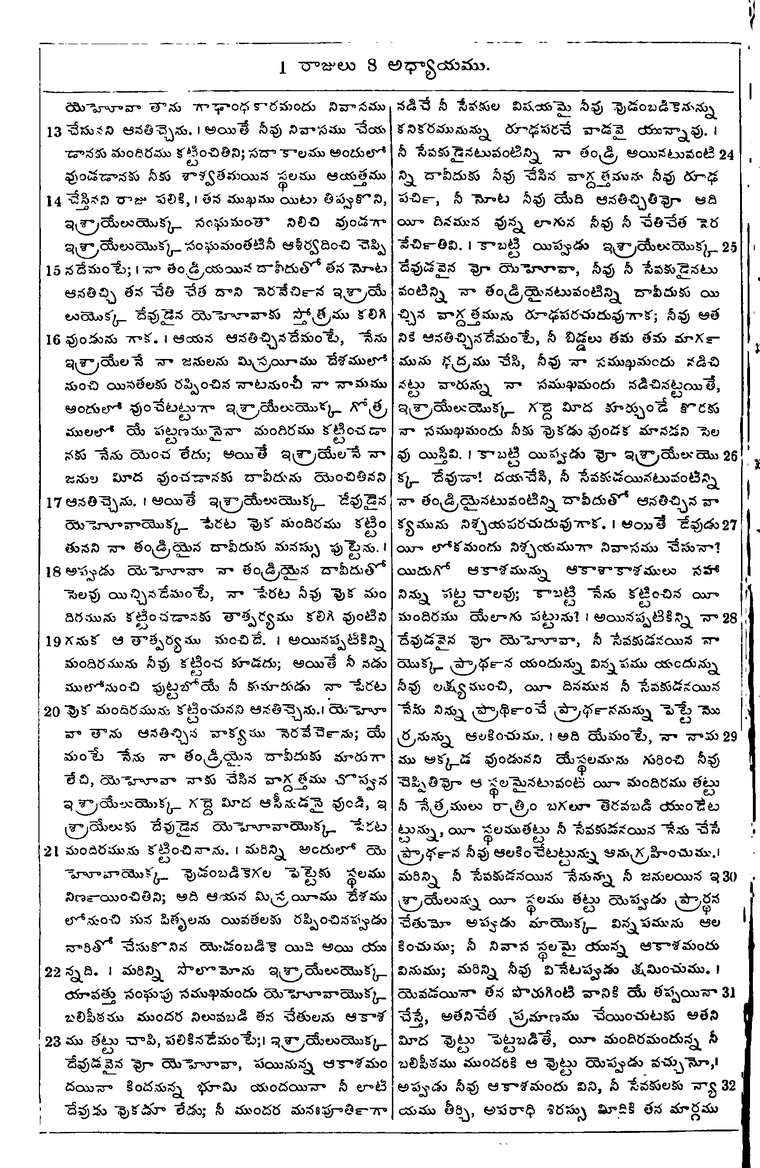 1 రాజులు 8 అధ్యాయము.
యెహోవా తాను గాఢాంధకారమందు నివాసము
13 చేసునని ఆనతిచ్చెను. । అయితే నీవు నివాసము చేయ
డానకు మందిరము కట్టించితిని; సదా కాలము అందులో
వుండడానకు నీకు శాశ్వతమయిన స్థలము ఆయత్తము
14 చేస్తినని రాజు పలికి, । తన ముఖము యిటు తిప్పుకొని,
ఇశ్రాయేలుయొక్క సంఘమంతా నిలిచి వుండగా
ఇశ్రాయేలుయొక్క సంఘమంతటినీ ఆశీర్వదించి చెప్పి
15 నదేమంటే; । నా తండ్రియయిన దావీదుతో తన మోట
ఆనతిచ్చి తన చేతి చేత దాని నెరవేర్చిన ఇశ్రాయే
లుయొక్క దేవుడైన యెహోవాకు స్తోత్రము కలిగి
16 వుండును గాక. । ఆయన ఆనతిచ్చినదేమంటే, నేను
ఇశ్రాయేలనే నా జనులను మిస్రయీము దేశములో
నుంచి యివతలకు రప్పించిన నాటనుంచీ నా నామము
అందులో వుంచేటట్టుగా ఇశ్రాయేలుయొక్క గోత్ర
ములలో యే పట్టణమునైనా మందిరము కట్టించడా
నకు నేను యెంచ లేదు; అయితే ఇశ్రాయేలనే నా
జనుల మీద వుంచడానకు దావీదును యెంచితినని
17 ఆనతిచ్చెను. । అయితే ఇశ్రాయేలుయొక్క దేవుడైన
యెహోవాయొక్క పేరట వొక మందిరము కట్టిం
తునని నా తండ్రియైన దావీదుకు మనస్సు పుట్టెను. ।
18 అప్పుడు యెహోవా నా తండ్రియైన దావీదుతో
సెలవు యిచ్చినదేమంటే, నా పేరట నీవు వొక మం
దిరమును కట్టించడానకు తాత్పర్యము కలిగి వుంటిని
19 గనుక ఆ తాత్పర్యము మంచిదే. । అయినప్పటికిన్ని
మందిరమును నీవు కట్టించ కూడదు; అయితే నీ నడు
ములోనుంచి పుట్టబోయే నీ కుమారుడు నా పేరట
20 వొక మందిరమును కట్టించునని ఆనతిచ్చెను. । యెహో
వా తాను ఆనతిచ్చిన వాక్యము నెరవేర్చెను; యే
మంటే నేను నా తండ్రియైన దావీదుకు మారుగా
లేచి, యెహోవా నాకు చేసిన వాగ్దత్తము చొప్పున
ఇశ్రాయేలుయొక్క గద్దె మీద ఆసీనుడనై వుండి, ఇ
శ్రాయేలుకు దేవుడైన యెహోవాయొక్క పేరట
21 మందిరమును కట్టించినాను. । మరిన్ని అందులో యె
హోవాయొక్క వొడంబడికెగల పెట్టెకు స్థలము
నిర్ణయించితిని; అది ఆయన మిస్రయీము దేశము
లోనుంచి మన పితృలను యివతలకు రప్పించినప్పుడు
వారితో చేసుకొనిన యొడంబడికె యిది అయి యు
22 న్నది. । మరిన్ని సొలొమోను ఇశ్రాయేలుయొక్క
యావత్తు సంఘపు సముఖమందు యెహోవాయొక్క
బలిపీఠము ముందర నిలువబడి తన చేతులను ఆకాశ
23 ము తట్టు చాపి, పలికినదేమంటే;। ఇశ్రాయేలుయొక్క
దేవుడవైన వో యెహోవా, పయినున్న ఆకాశమం
దయినా కిందనున్న భూమి యందయినా నీ లాటి
దేవుడు వొకడూ లేడు; నీ ముందర మనఃపూర్తిగా
నడిచే నీ సేవకుల విషయమై నీవు వొడంబడికెనున్ను
కనికరమునున్ను రూఢపరచే వాడవై యున్నావు. ।
నీ సేవకుడైనటువంటిన్ని నా తండ్రి అయినటువంటి 24
న్ని దావీదుకు నీవు చేసిన వాగ్దత్తమును నీవు రూఢ
పర్చి, నీ మోట నీవు యేది ఆనతిచ్చితివో అది
యీ దినమున వున్న లాగున నీవు నీ చేతిచేత నెర
వేర్చితివి. । కాబట్టి యిప్పుడు ఇశ్రాయేలుయొక్క 25
దేవుడవైన వో యెహోవా, నీవు నీ సేవకుడైనటు
వంటిన్ని నా తండ్రియైనటువంటిన్ని దావీదుకు యి
చ్చిన వాగ్దత్తమును రూఢపరచుదువుగాక; నీవు అత
నికి ఆనతిచ్చినదేమంటే, నీ బిడ్డలు తమ తమ మార్గ
మును భద్రము చేసి, నీవు నా సముఖమందు నడిచి
నట్టు వారున్ను నా సముఖమందు నడిచినట్టయితే,
ఇశ్రాయేలుయొక్క గద్దె మీద కూర్చుండే కొరకు
నా సముఖమందు నీకు వొకడు వుండక మానడని సెల
వు యిస్తివి. । కాబట్టి యిప్పుడు వో ఇశ్రాయేలుయొ 26
క్క దేవుడా! దయచేసి, నీ సేవకుడయినటువంటిన్ని
నా తండ్రియైనటువంటిన్ని దావీదుతో ఆనతిచ్చిన వా
క్యమును నిశ్చయపరచుదువుగాక. । అయితే దేవుడు 27
యీ లోకమందు నిశ్చయముగా నివాసము చేసునా?
యిదుగో ఆకాశమున్ను ఆకాశాకాశములు సహా
నిన్ను పట్ట చాలవు; కాబట్టి నేను కట్టించిన యీ
మందిరము యేలాగు పట్టును! । అయినప్పటికిన్ని నా 28
దేవుడవైన వో యెహోవా, నీ సేవకుడనయిన నా
యొక్క ప్రార్థన యందున్ను విన్నపము యందున్ను
నీవు లక్ష్యముంచి, యీ దినమున నీ సేవకుడనయిన
నేను నిన్ను ప్రార్థించే ప్రార్థననున్ను పెట్టే మొ
ర్రనున్ను ఆలకించుము. । అది యేమంటే, నా నామ 29
ము అక్కడ వుండునని యేస్థలమును గురించి నీవు
చెప్పితివో ఆ స్థలమైనటువంటి యీ మందిరము తట్టు
నీ నేత్రములు రాత్రిం బగలూ తెరవబడి యుండేట
ట్టున్ను, యీ స్థలముతట్టు నీ సేవకుడనయిన నేను చేసే
ప్రార్థన నీవు ఆలకించేటట్టున్ను అనుగ్రహించుము.।
మరిన్ని నీ సేవకుడనయిన నేనున్ను నీ జనులయిన ఇ 30
శ్రాయేలున్ను యీ స్థలము తట్టు యెప్పుడు ప్రార్థన
చేతుమో అప్పుడు మాయొక్క విన్నపమును ఆల
కించుము; నీ నివాస స్థలమై యున్న ఆకాశమందు
వినుము; మరిన్ని నీవు వినేటప్పుడు క్షమించుము. ।
యెవడయినా తన పొరుగింటి వానికి యే తప్పయినా 31
చేస్తే, అతనిచేత ప్రమాణము చేయించుటకు అతని
మీద వొట్టు పెట్టబడితే, యీ మందిరమందున్న నీ
బలిపీఠము ముందరికి ఆ వొట్టు యెప్పుడు వచ్చునో,।
అప్పుడు నీవు ఆకాశమందు విని, నీ సేవకులకు న్యా 32
యము తీర్చి, అపరాధి శిరస్సు మీదికి తన మార్గము